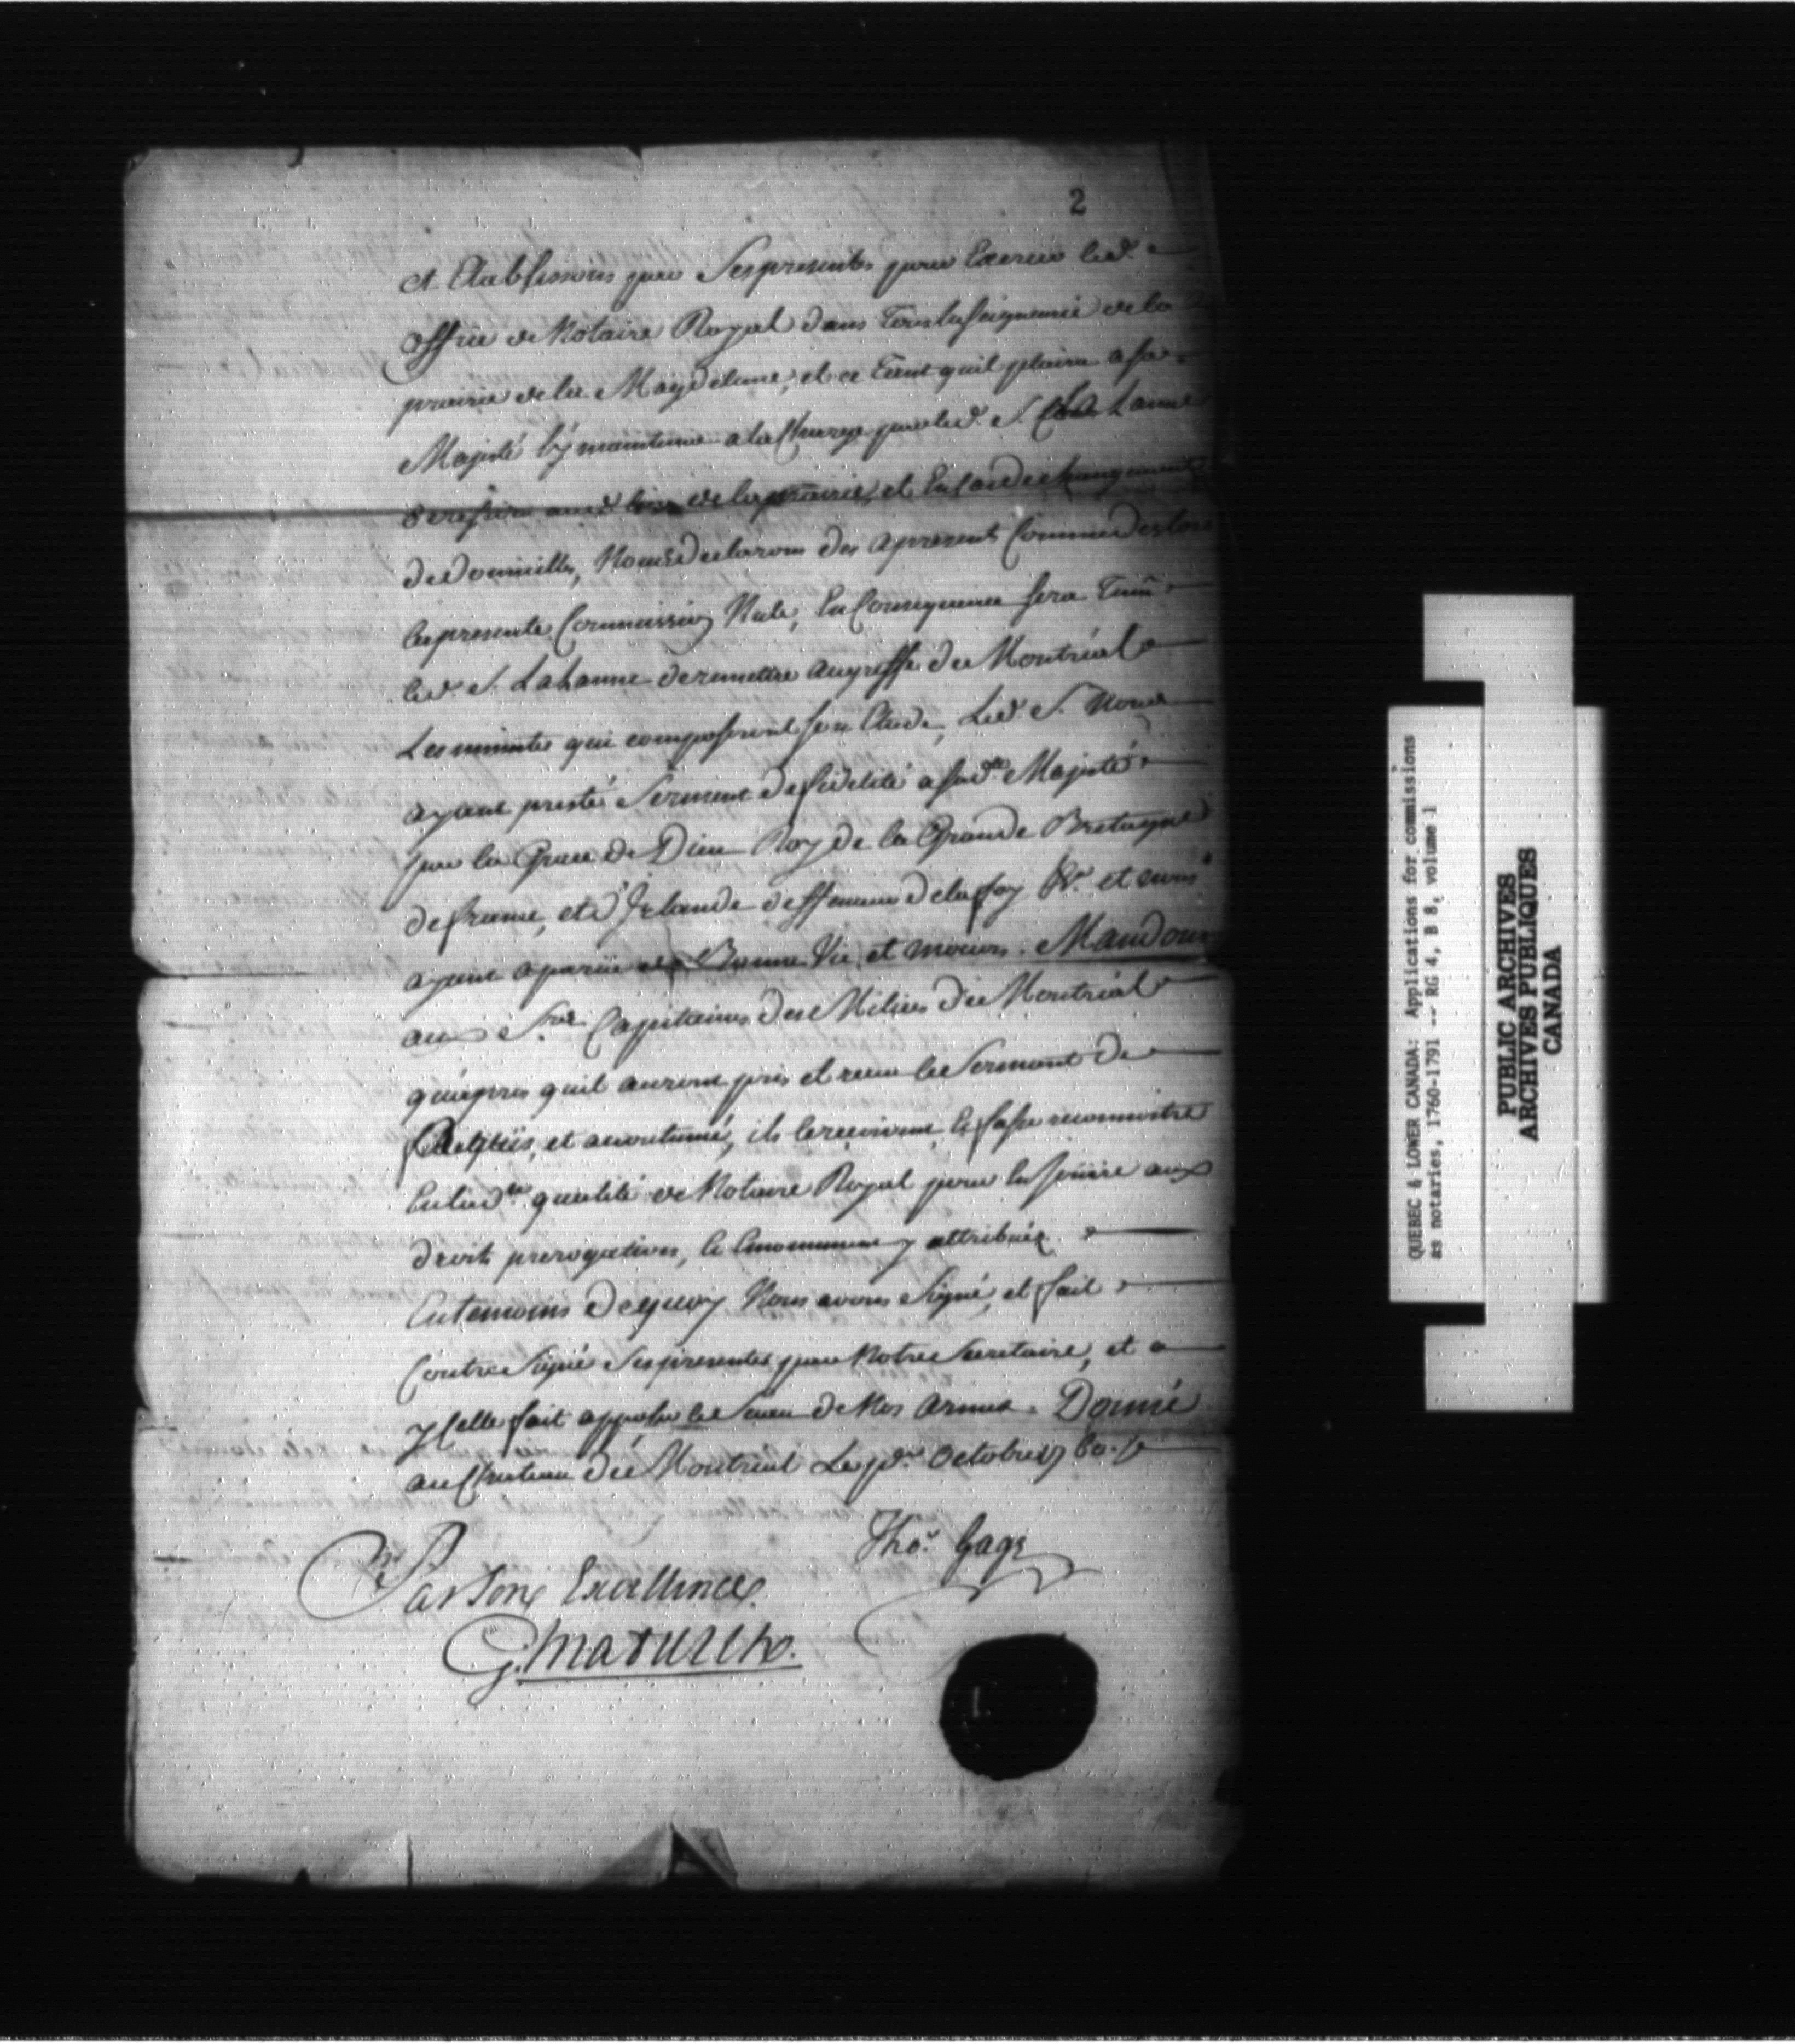 2
et Etablissons par Ses presentes pour Exercer led.
office de Notaire Royal dans Toute la Seigneurie de la
prairie de la Magdelaine, et ce Tant quil plaira a Sa
Majesté Ly maintenir a la Charge par led. S. Lahanne
de resider aud. lieu de la prairie, et En Cas de changement
de Domicille, Nous Declarons des apresent Comme des lors
la presente Commission Nule, En Consequence Sera Tenu
led. S. Lahanne de remettre au greffe de Montréal
Les minutes qui composeront Son Etude, Led. S. Nous
ayant presté Serment de fidelité a Sad.te Majesté
par la Grace de Dieu Roy de la Grande Bretagne
de france, et d'Irlande deffenseur de la foy &c. et nous
ayant aparüe de Bonne Vie et moeurs. Mandons
aux S.rs Capitaines des Milices de Montréal
qu'apres quil auront pris et receu le Serment De
Luy requis, et acoutumé, ils le recoivent, le fasse reconnoitre
En lad.te qualité de Notaire Royal pour En Joüire aux
droit prerogatives, et Emonument y attribuéz.
En temoins De quoy Nous avons Signé, et fait
Contre Signé Ses presentes par Notre Secretaire, et a
ycelle fait apposer le Sceau de Nos Armes. Donné
au Chateau de Montreal Le p.er Octobre 1760.
Tho.s Gage
Par Son Excellence.
G. Maturin.
QUEBEC & LOWER CANADA: Applications for commissions
as notaries, 1760-1791 -- RG 4, B 8, volume 1
PUBLIC ARCHIVES
ARCHIVES PUBLIQUES
CANADA